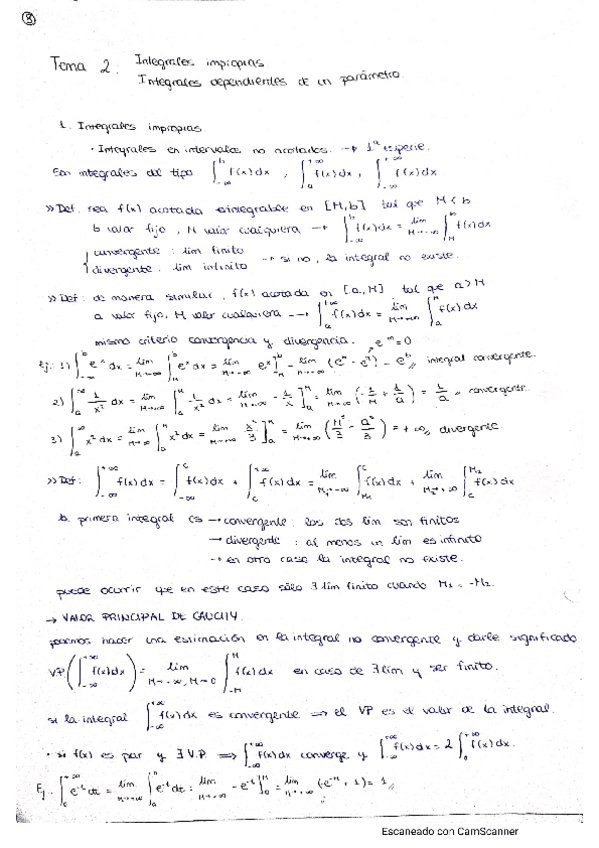 8
Tema 2. Integrales impropias.
Integrales dependientes de un parámetro.
1. Integrales impropias.
· Integrales en intervalos no acotados. → 1ª especie.
Son integrales del tipo ∫_{-∞}^{b} f(x)dx , ∫_{a}^{+∞} f(x)dx , ∫_{-∞}^{+∞} f(x)dx
>> Def. sea f(x) acotada e integrable en [M,b] tal que M<b
b valor fijo, M valor cualquiera → ∫_{-∞}^{b} f(x)dx = lim_{M→-∞} ∫_{M}^{b} f(x)dx
convergente: lim finito
divergente: lim infinito → si no, la integral no existe.
>> Def: de manera similar, f(x) acotada en [a,M] tal que a>M
a valor fijo, M valor cualquiera → ∫_{a}^{+∞} f(x)dx = lim_{M→+∞} ∫_{a}^{M} f(x)dx
mismo criterio convergencia y divergencia. e^{-∞}=0
Ej: 1) ∫_{-∞}^{b} e^x dx = lim_{M→-∞} ∫_{M}^{b} e^x dx = lim_{M→-∞} e^x]_{M}^{b} = lim_{M→-∞} (e^b - e^M) = e^b // integral convergente.
2) ∫_{a}^{∞} 1/x² dx = lim_{M→∞} ∫_{a}^{M} 1/x² dx = lim_{M→∞} - 1/x]_{a}^{M} = lim_{M→∞} (-1/M + 1/a) = 1/a // convergente.
3) ∫_{a}^{∞} x² dx = lim_{M→∞} ∫_{a}^{M} x² dx = lim_{M→∞} x³/3]_{a}^{M} = lim_{M→+∞} (M³/3 - a³/3) = +∞ // divergente
>> Def: ∫_{-∞}^{+∞} f(x)dx = ∫_{-∞}^{c} f(x)dx + ∫_{c}^{+∞} f(x)dx = lim_{M₁→-∞} ∫_{M₁}^{c} f(x)dx + lim_{M₂→+∞} ∫_{c}^{M₂} f(x)dx
primera integral es → convergente: los dos lim son finitos
→ divergente: al menos un lim es infinito
→ en otro caso la integral no existe.
puede ocurrir que en este caso sólo ∃ lim finito cuando M₁ = -M₂.
→ VALOR PRINCIPAL DE CAUCHY.
podemos hacer una estimación en la integral no convergente y darle significado
V.P(∫_{-∞}^{+∞} f(x)dx) = lim_{M→∞, M>0} ∫_{-M}^{M} f(x)dx en caso de ∃ lim y ser finito.
si la integral ∫_{-∞}^{+∞} f(x)dx es convergente ⟹ el VP es el valor de la integral.
· si f(x) es par y ∃ V.P ⟹ ∫_{-∞}^{+∞} f(x)dx converge y ∫_{-∞}^{+∞} f(x)dx = 2 ∫_{0}^{+∞} f(x)dx.
Ej. ∫_{0}^{+∞} e^{-t} dt = lim_{M→+∞} ∫_{0}^{M} e^{-t} dt = lim_{M→+∞} - e^{-t}]_{0}^{M} = lim_{M→+∞} (-e^{-M} + 1) = 1 //
Escaneado con CamScanner